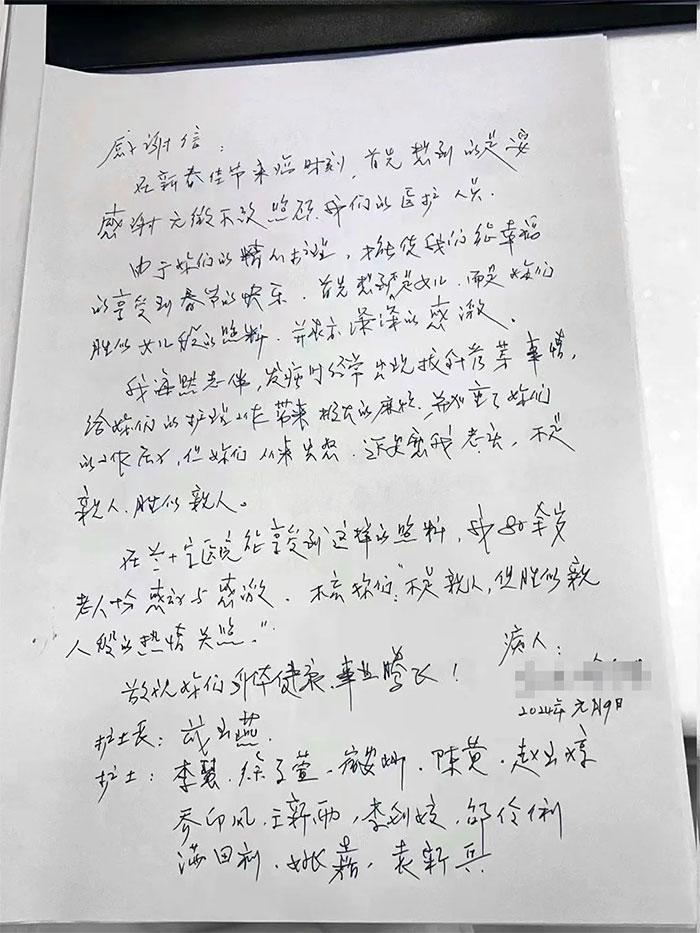 感谢信：
在新春佳节来临时刻，首先想到的是要
感谢无微不致照顾我们的医护人员．
由于你们的精心护理，才能使我们能幸福
的享受到春节的快乐．首先想到是女儿．而是你们
胜似女儿般的照料．并表示深深的感激。
我每然老伴，发病时经常出现拔针等事情，
给你们的护理工作带来极大的麻烦．并加重了你们
的工作压力，但你们从未发怒．还安慰我老头，不是
亲人．胜似亲人。
在三十宝医院能享受到这样的照料，我80余岁
老人十分感动与感激．你们："不是亲人，但胜似亲
人般的热情关照．"
敬祝你们身体健康．事业腾飞！
病人：
2024年元月9日
护士长：燕．
护士：李慧．徐子萱．娜．陈黄．赵
王新雨，李利
满田利．姚嘉．袁新兵